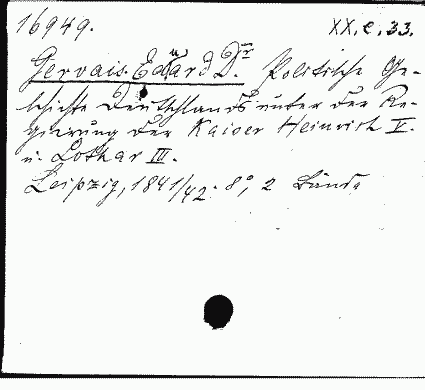 16949. XX.e.33.
Gervais. Eduard Dr. Politische Ge-
schichte Deutschlands unter der Re-
gierung der Kaiser Heinrich V.
u. Lothar III.
Leipzig, 1841/42. 8°, 2 Bände